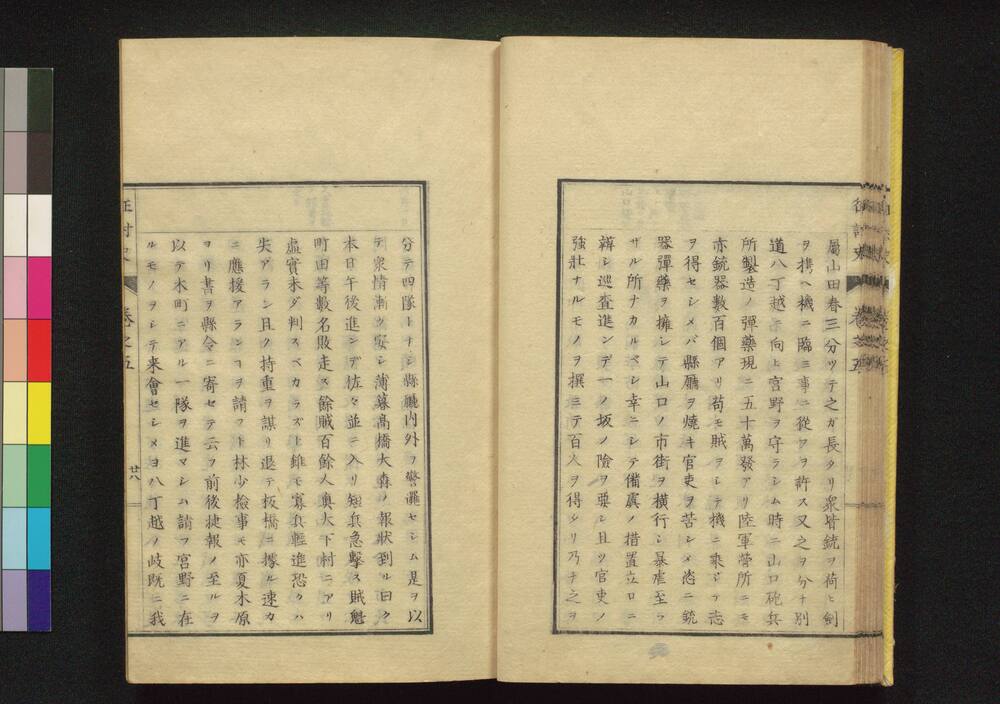 屬山田春三分ツテ之ガ長タリ衆皆銃ヲ荷ヒ劍
ヲ携ヘ機ニ臨ミ事ニ從フヲ許ス又之ヲ分チ別
道八丁越ニ向ヒ宮野ヲ守ラシム時ニ山口砲兵
所製造ノ彈藥現ニ五十萬發アリ陸軍營所ニモ
亦銃器數百個アリ苟モ賊ヲシテ機ニ乘ジテ志
ヲ得セシメバ縣廳ヲ燒キ官吏ヲ苦シメ恣ニ銃
器彈藥ヲ擁シテ山口ノ市街ヲ横行シ暴虐至ラ
ザル所ナカルベシ幸ニシテ備虞ノ措置立ロニ
辨シ巡査進ンデ一ノ坂ノ險ヲ要シ且ツ官吏ノ
強壯ナルモノヲ撰ミテ百人ヲ得タリ乃チ之ヲ
征討史
卷之五
分テ四隊トナシ縣廳内外ヲ警邏セシム是ヲ以
テ衆情漸ク安シ薄暮髙橋大森ノ報狀到ル曰ク
本日午後進ンデ佐々並ニ入リ短兵急擊ス賊魁
町田等數名敗走ス餘賊百餘人奥大下村ニアリ
虛實未ダ判スベカラズト雖モ寡兵輕進恐クハ
失アラン且ク持重ヲ謀リ退テ板橋ニ據ル速カ
ニ應援アランコヲ請フト林少檢事モ亦夏木原
ヨリ書ヲ縣令ニ寄セテ云ヲ前後捷報ノ至ルヲ
以テ木町ニアル一隊ヲ進マシム請フ宮野ニ在
ルモノヲシテ来會セシメヨ八丁越ノ岐既ニ我
征討史
卷之五
廿八